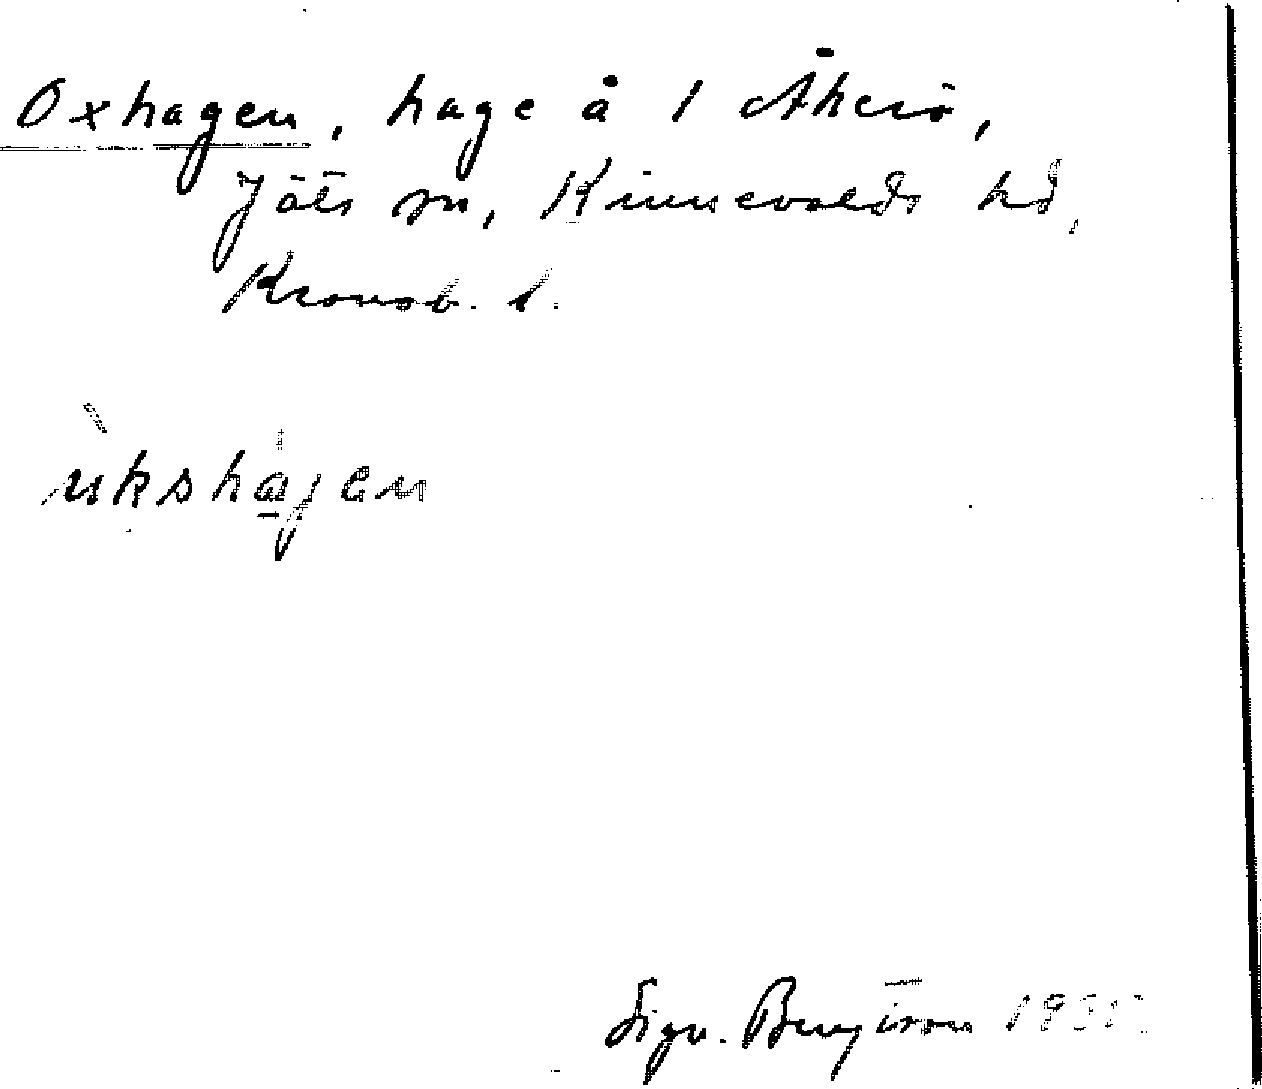 Oxhagen, hage å 1 Åherö,
Jäts sn, Kinnevalds hd,
Kronob. l.
ùkshagen
Sigv. Bengtson 193